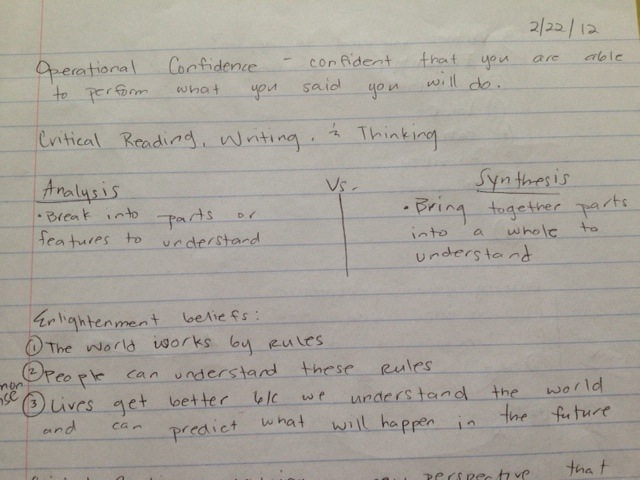 2/22/12
Operational Confidence - confident that you are able
to perform what you said you will do.
Critical Reading, Writing, & Thinking
Analysis Vs. Synthesis
• Break into parts or
features to understand
• Bring together parts
into a whole to
understand
Enlightenment beliefs:
① The world works by rules
② People can understand these Rules
③ Lives get better b/c we understand the world
and can predict what will happen in the future
perspective that